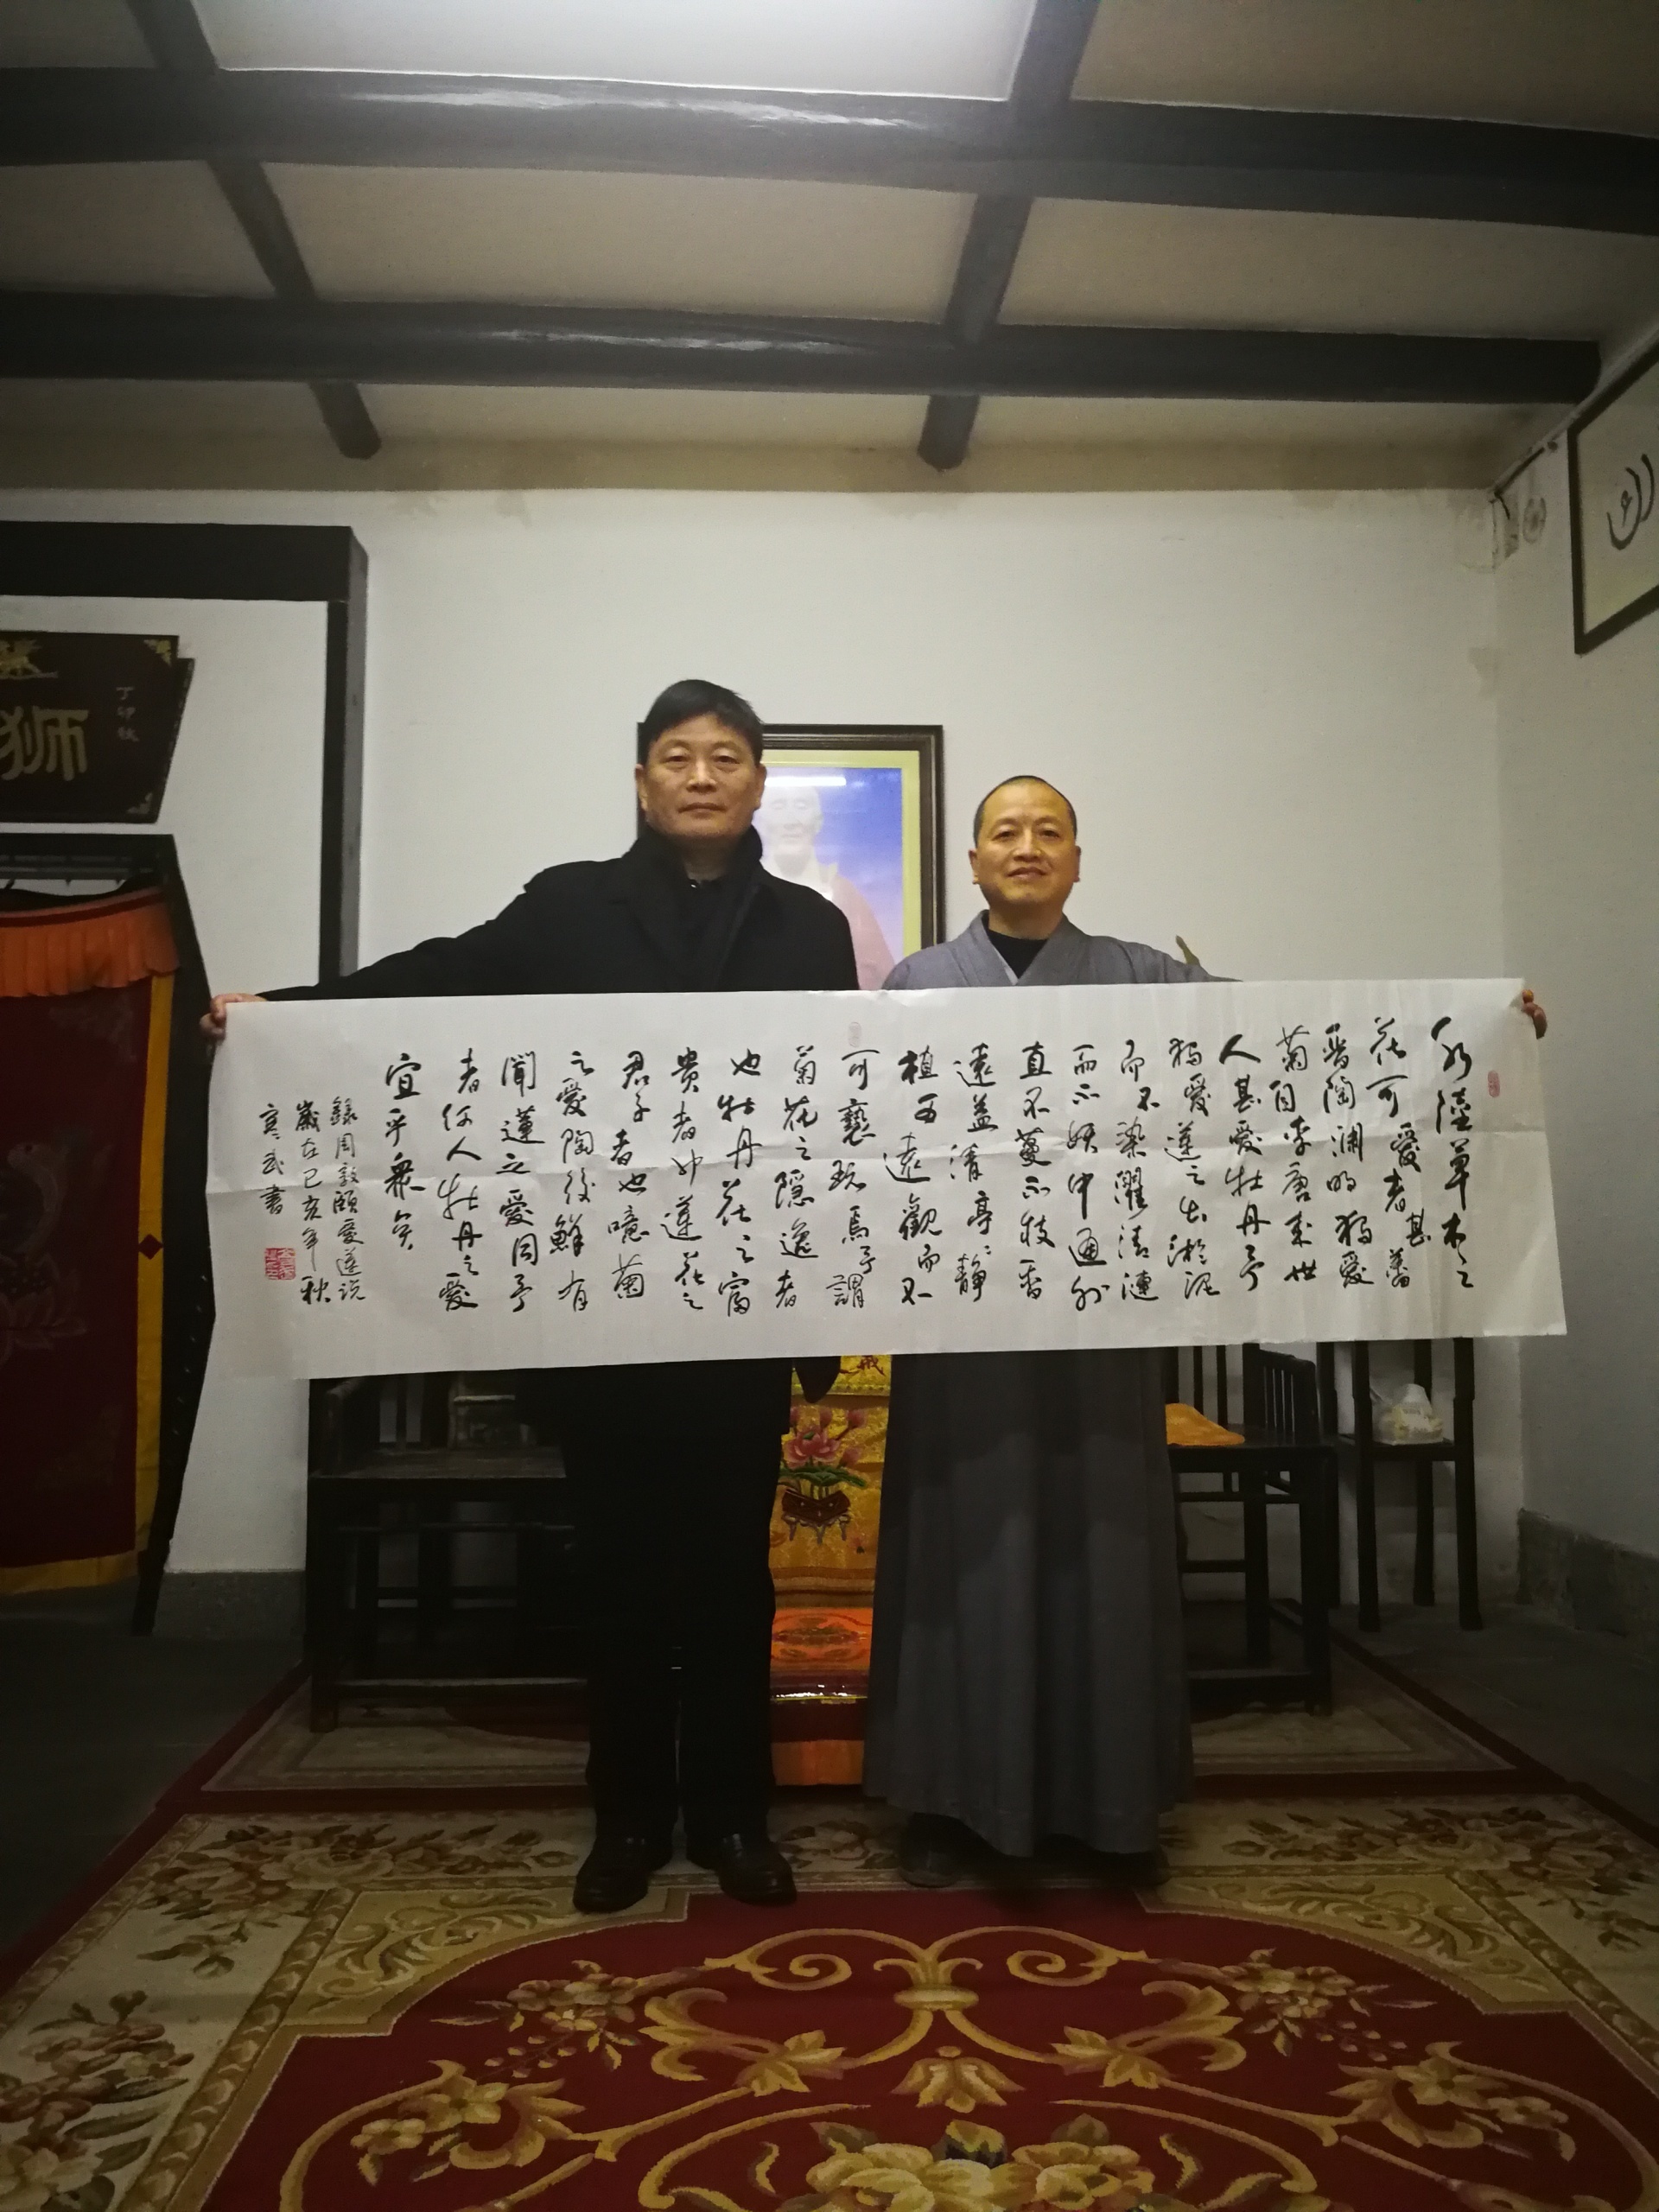 水陸草木之
花可愛者甚蕃
晉陶渊明独愛
菊自李唐来世
人甚愛牡丹予
独愛蓮之出淤泥
而不染濯清漣
而不妖中通外
直不蔓不枝香
遠益清亭〻静
植可遠觀而不
可褻玩焉予謂
菊花之隱逸者
也牡丹花之富
貴者也蓮花之
君子者也噫菊
之愛陶後鮮有
聞蓮之愛同予
者何人牡丹之愛
宜乎衆矣
錄周敦頤愛蓮说
歲在己亥年秋
武書
丁卯秋
狮